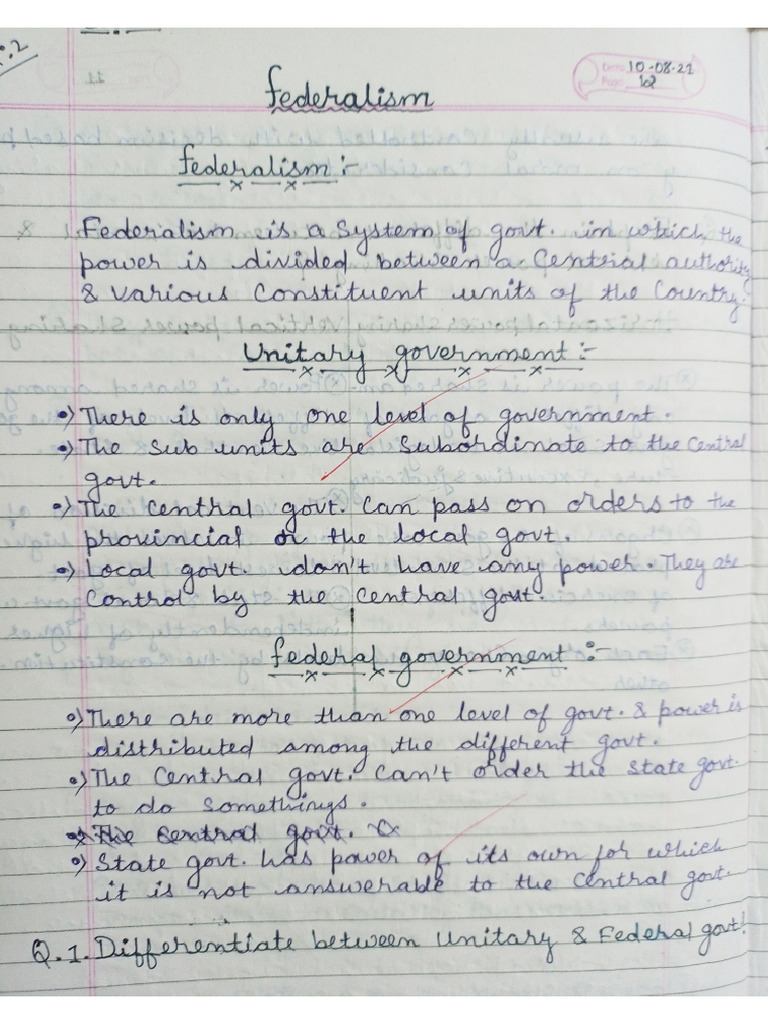 :2
Date 10-08-21
Page 62
Federalism
Federalism :-
Federalism is a System of govt. in which the
power is divided between a Central authority
& various constituent units of the Country.
Unitary government :-
•) There is only one level of government.
•) The sub units are subordinate to the central
govt.
•) The central govt. can pass on orders to the
provincial or the local govt.
•) Local govt. don't have any power. They are
control by the central govt.
Federal government :-
•) There are more than one level of govt. & power is
distributed among the different govt.
•) The central govt. can't order the state govt.
to do somethings.
•) The central govt. c
•) State govt. has power of its own for which
it is not answerable to the central govt.
Q.1. Differentiate between Unitary & Federal govt!